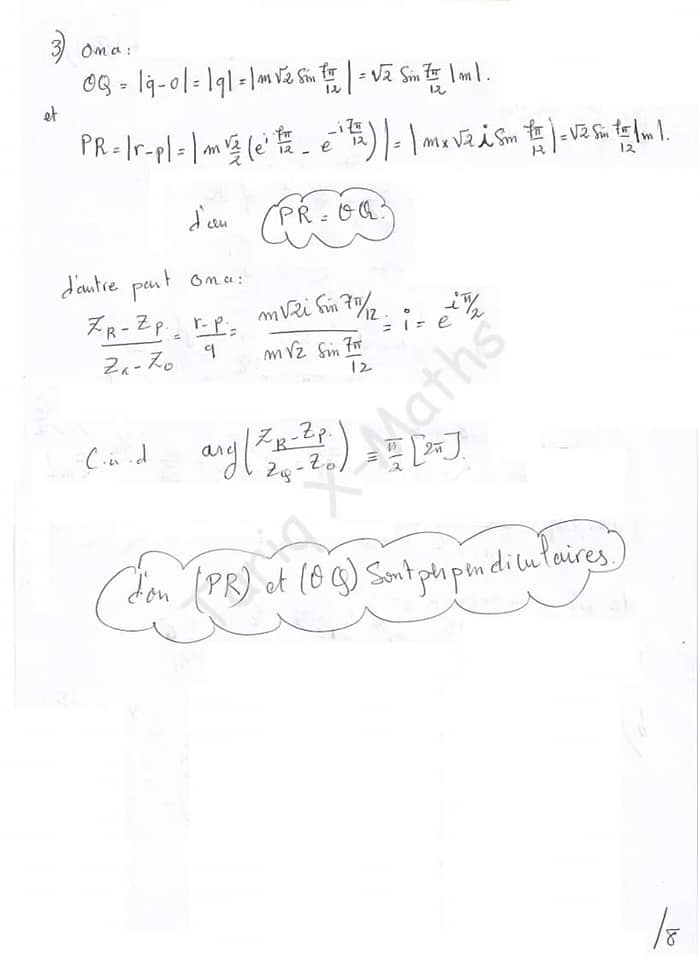 3) On a:
OQ = |q-o| = |q| = |m√2 sin 7π/12| = √2 sin 7π/12 |m|.
et
PR = |r-p| = |m √2/2 (e^{i 7π/12} - e^{-i 7π/12})| = |m×√2 i sin 7π/12| = √2 sin 7π/12 |m|.
d'où PR = OQ.
d'autre part on a:
(Z_R - Z_P)/(Z_Q - Z_O) = (r-p)/q = (m√2 i sin 7π/12)/(m√2 sin 7π/12) = i = e^{iπ/2}
C.à.d arg((Z_R - Z_P)/(Z_Q - Z_O)) ≡ π/2 [2π].
d'où (PR) et (OQ) sont perpendiculaires.
Tariq X-Maths
/8